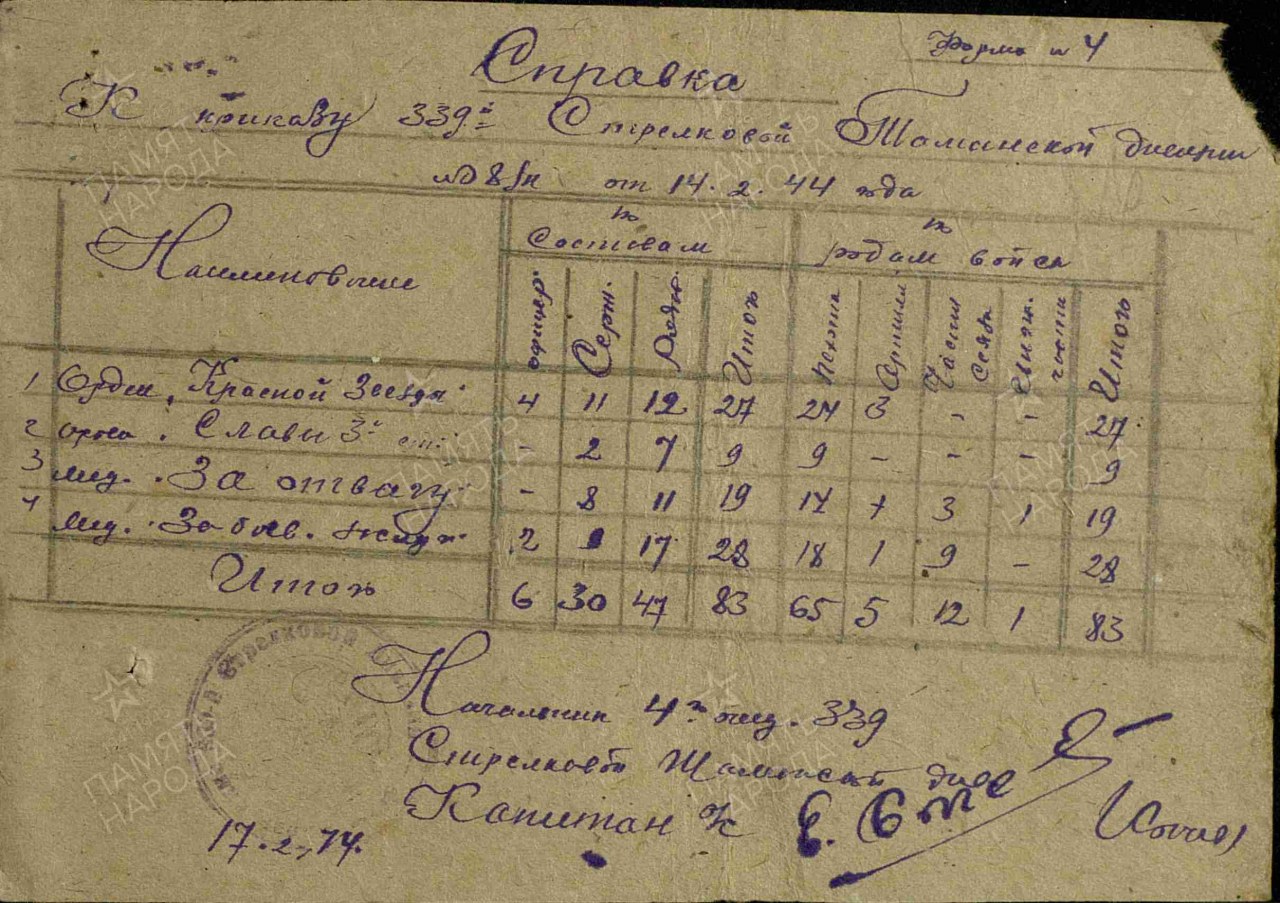 Форма № 4
Справка
К приказу 339й Стрелковой Таманской дивизии
№ 08/н от 14.2.44 года
Наименование
по составам
по родам войск
офицер. Серж. Рядов. Итого Пехота Артилл Части связи части Итого
1 Орден "Красной Звезды" 4 11 12 27 24 3 - - 27
2 орден "Славы 3й ст." - 2 7 9 9 - - - 9
3 мед. "За отвагу" - 8 11 19 14 1 3 1 19
4 мед. "За боев. заслуги" 2 9 17 28 18 1 9 - 28
Итого 6 30 47 83 65 5 12 1 83
Начальник 4го отд. 339
Стрелковой Таманской див
Капитан
17.2.44.
Стрелковой
ПАМЯТЬ НАРОДА